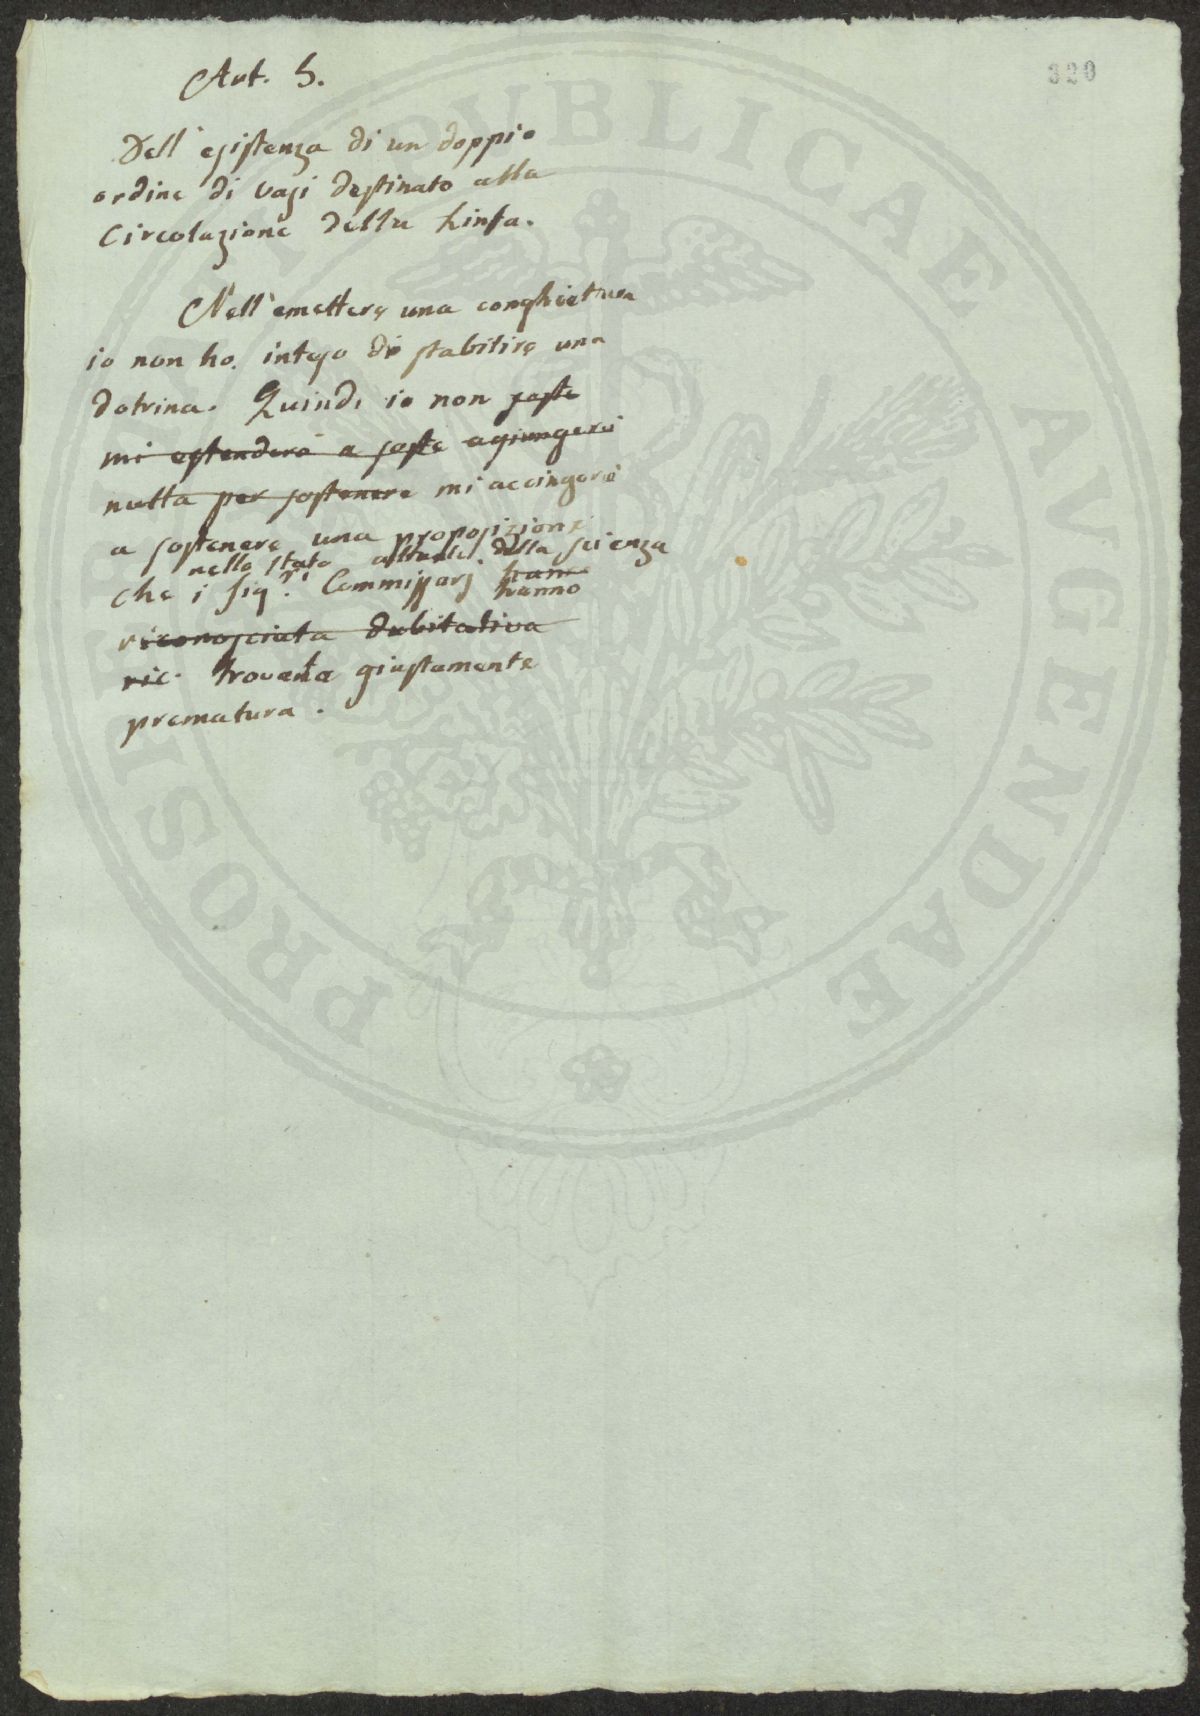 320
Art. 5.
Dell'esistenza di un doppio
ordine di vasi destinato alla
Circolazione della Linfa.
Nell'emettere una conghiettura
io non ho inteso di stabilire una
dotrina. Quindi io non
mi estenderò a agiungerò
nulla per sostenere mi accingerò
a sostenere una proposizione
nello stato attuale della scienza
che i sig.ri Commissarj hanno
hanno
riconosciuta dubitativa
ric. trovata giustamente
prematura.
PROSPERITATI PUBLICAE AUGENDAE